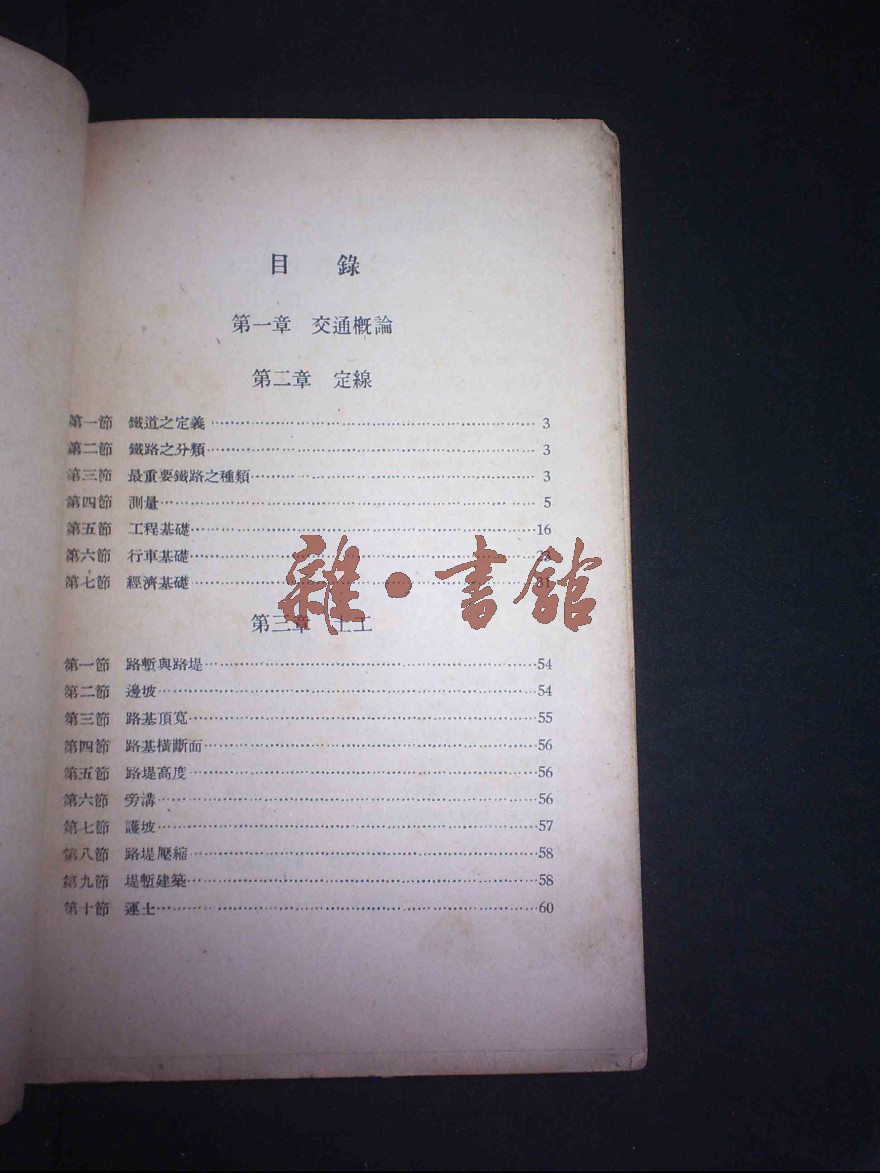 目 錄
第一章 交通概論
第二章 定線
第一節 鐵道之定義 3
第二節 鐵路之分類 3
第三節 最重要鐵路之種類 3
第四節 測量 5
第五節 工程基礎 16
第六節 行車基礎
第七節 經濟基礎 31
雜·書館
第三章 土工
第一節 路塹與路堤 54
第二節 邊坡 54
第三節 路基頂寬 55
第四節 路基橫斷面 56
第五節 路堤高度 56
第六節 旁溝 56
第七節 護坡 57
第八節 路堤壓縮 58
第九節 堤塹建築 58
第十節 運土 60